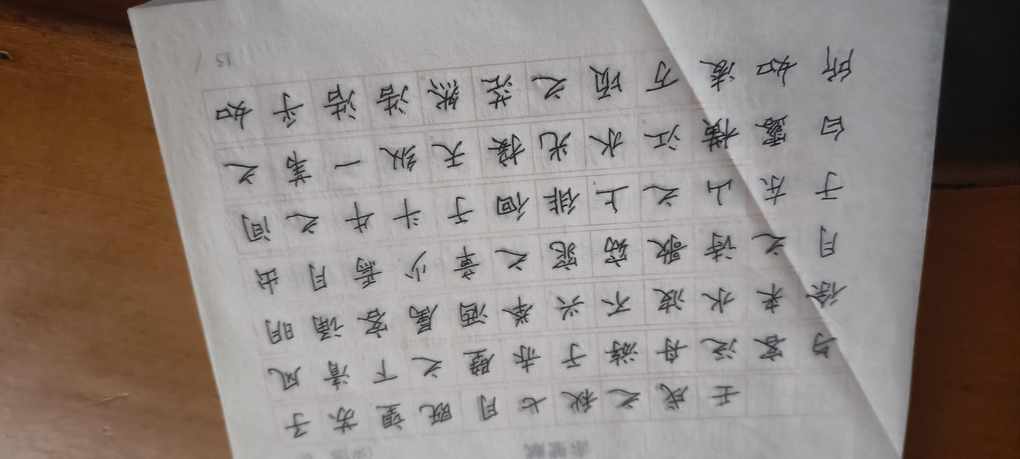 壬戌之秋七月既望苏子
与客泛舟游于赤壁之下清风
徐来水波不兴举酒属客诵明
月之诗歌窈窕之章少焉月出
于东山之上徘徊于斗牛之间
白露横江水光接天纵一苇之
所如凌万顷之茫然浩浩乎如